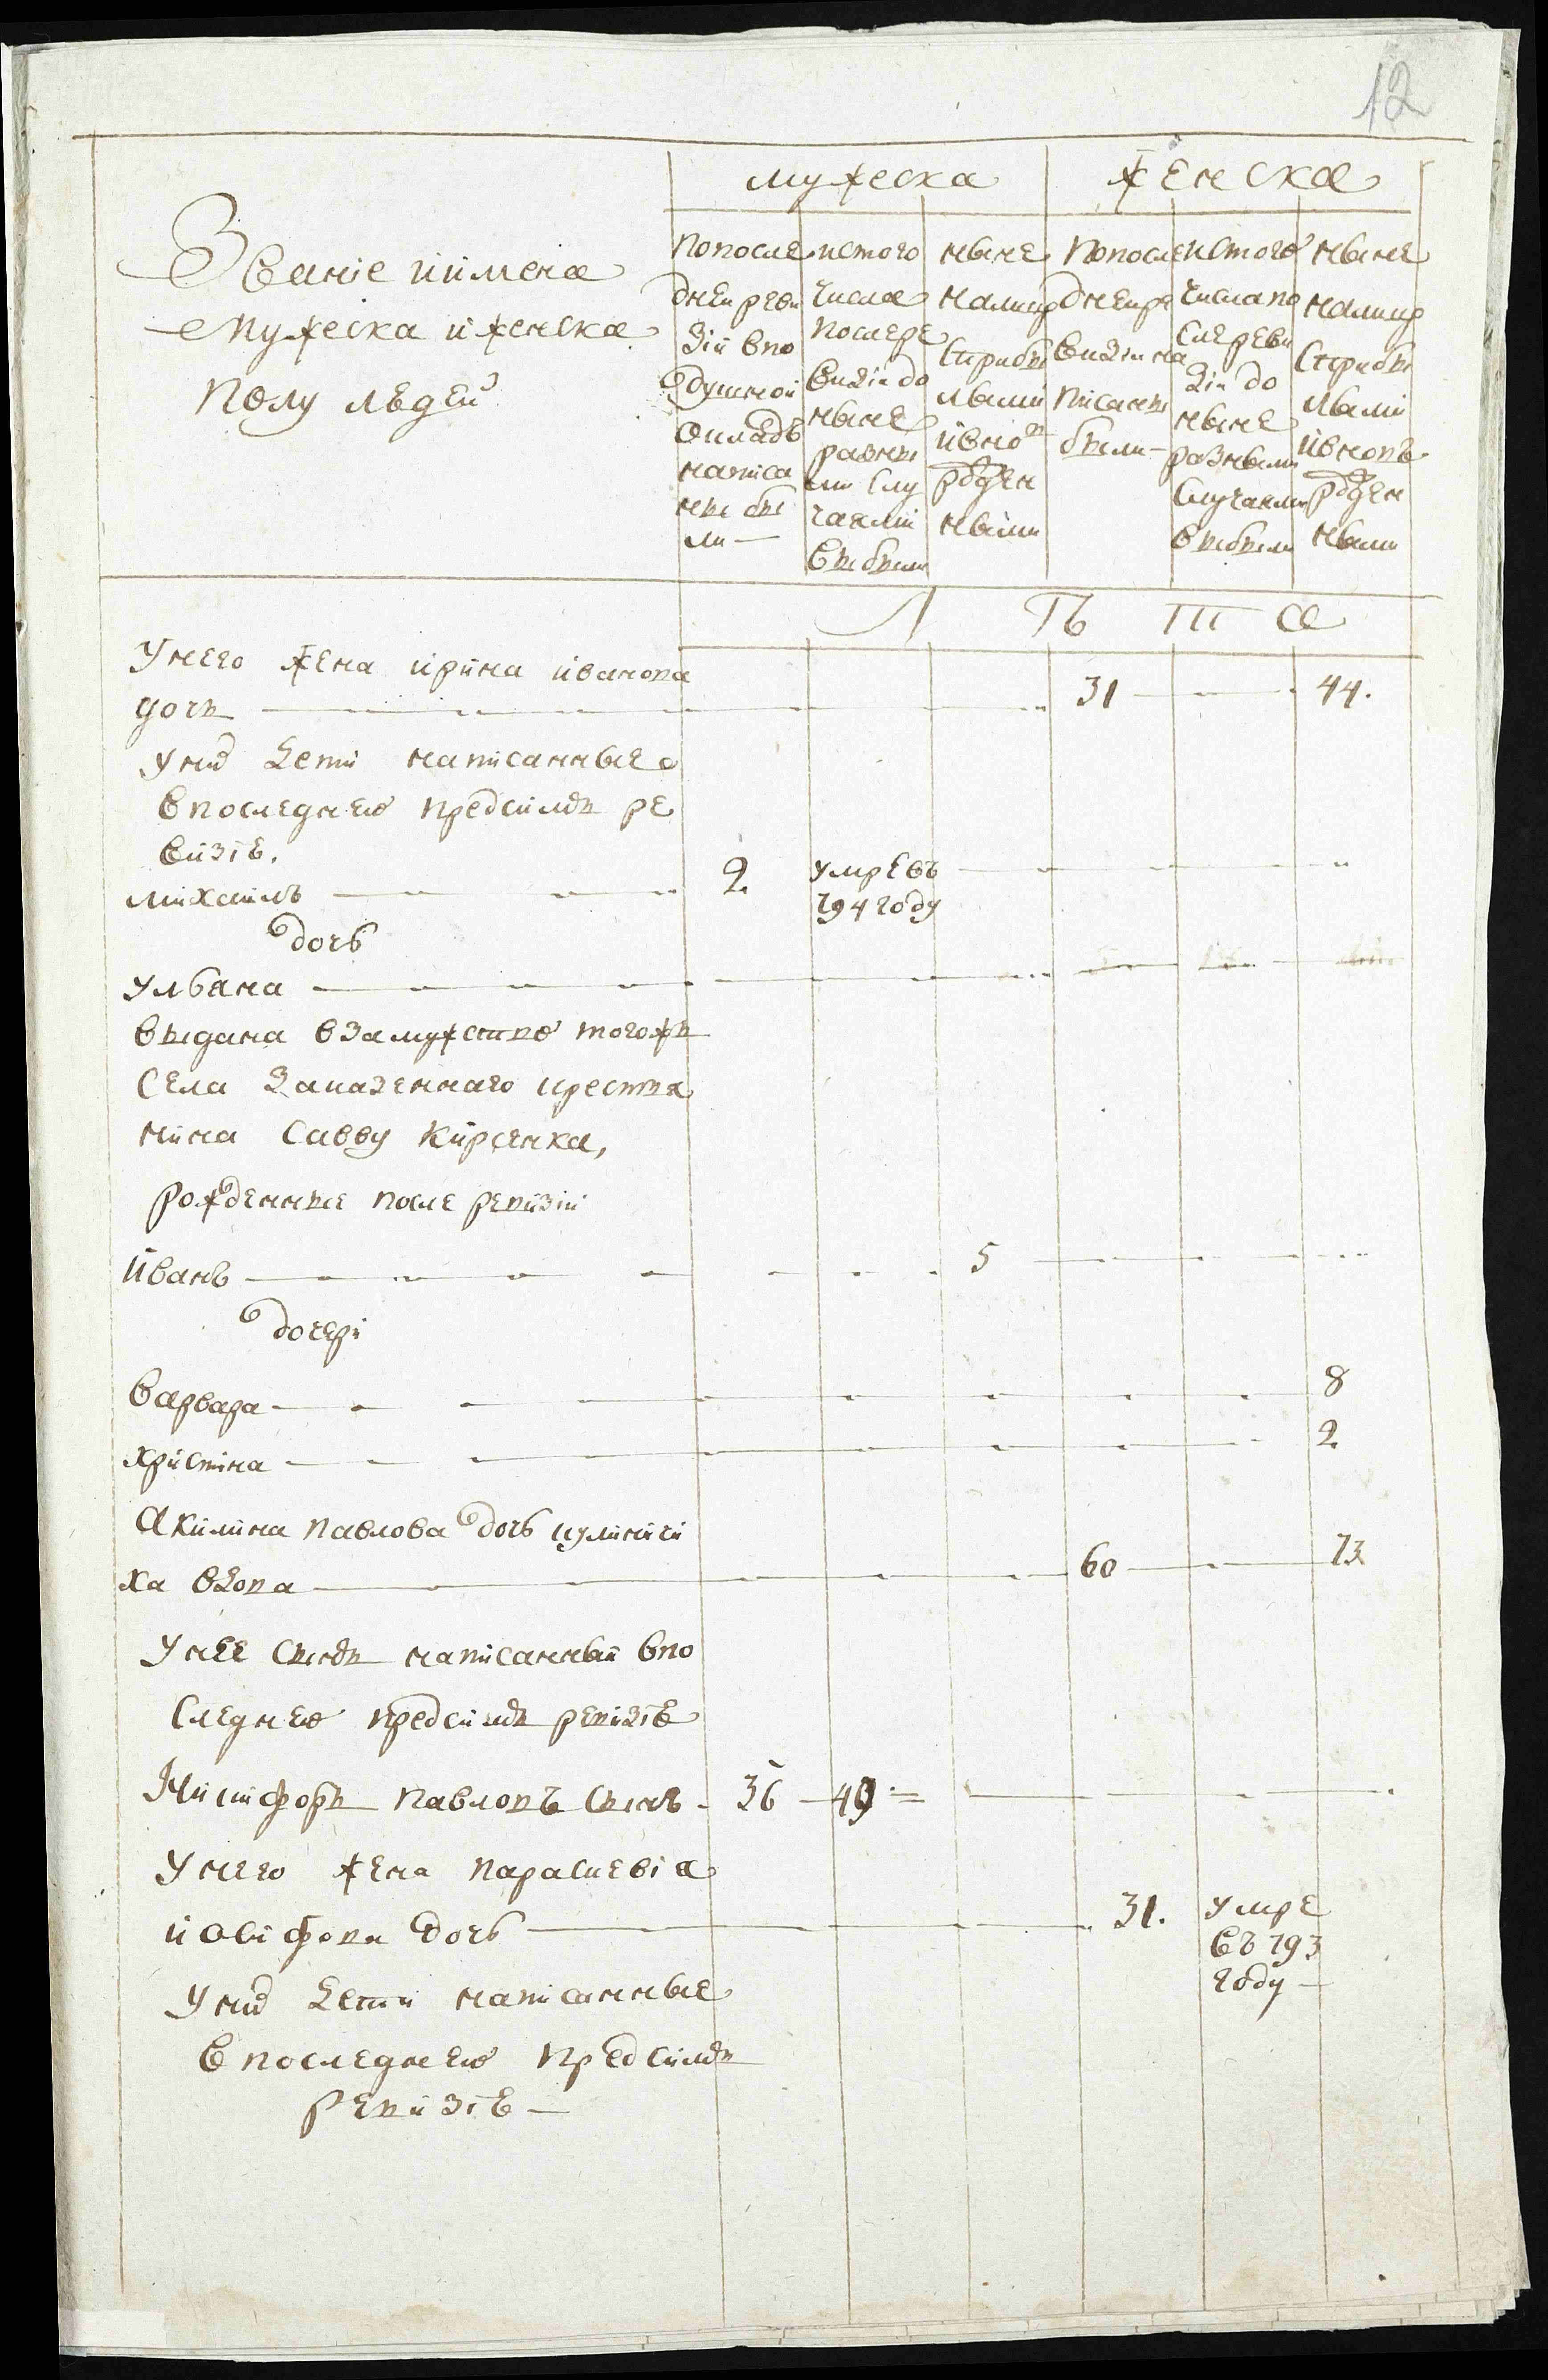 12
мужеска
женска
Званіе иимена
мужеска и женска
полу людей
попосле
дней реви
зіи впо
душной
окладъ
написа
ны бы
ли —
истого
числа
последе
визіи до
ныне
разны
ми слу
чаями
выбыли
ныне
налицо
сприбы
лыми
ивно
рожден
ными
попосле
дней ре
визіи на
писаны
были —
истого
числа по
сле реви
зіи до
ныне
разными
случаями
выбыли
ныне
налицо
сприбы
лыми
ивновъ
рожден
ными
Лѣта
Унего жена ирина иванова
дочь — 31 — 44.
уних дети написанные
впоследнею предсимъ ре
визіе.
михаилъ — 2 умре въ
794 году
дочь
ульяна —
выдана взамужство тогожъ
села казеннаго крестья
нина савву Кирсенка,
рожденные после ревизіи
иванъ — 5 —
дочери
варвара — 8
христина — 2
Акилина павлова дочь кулиничи
ха вдова — 60 — 73
Унее сынъ написанный впо
следнею предсимъ ревизіе
Никифоръ павловъ сынъ — 36 — 49 =
Унего жена параскевіа
дочь — 31. умре
въ 793
году —
Уних дети написанные
впоследнею предсимъ
ревизіе —